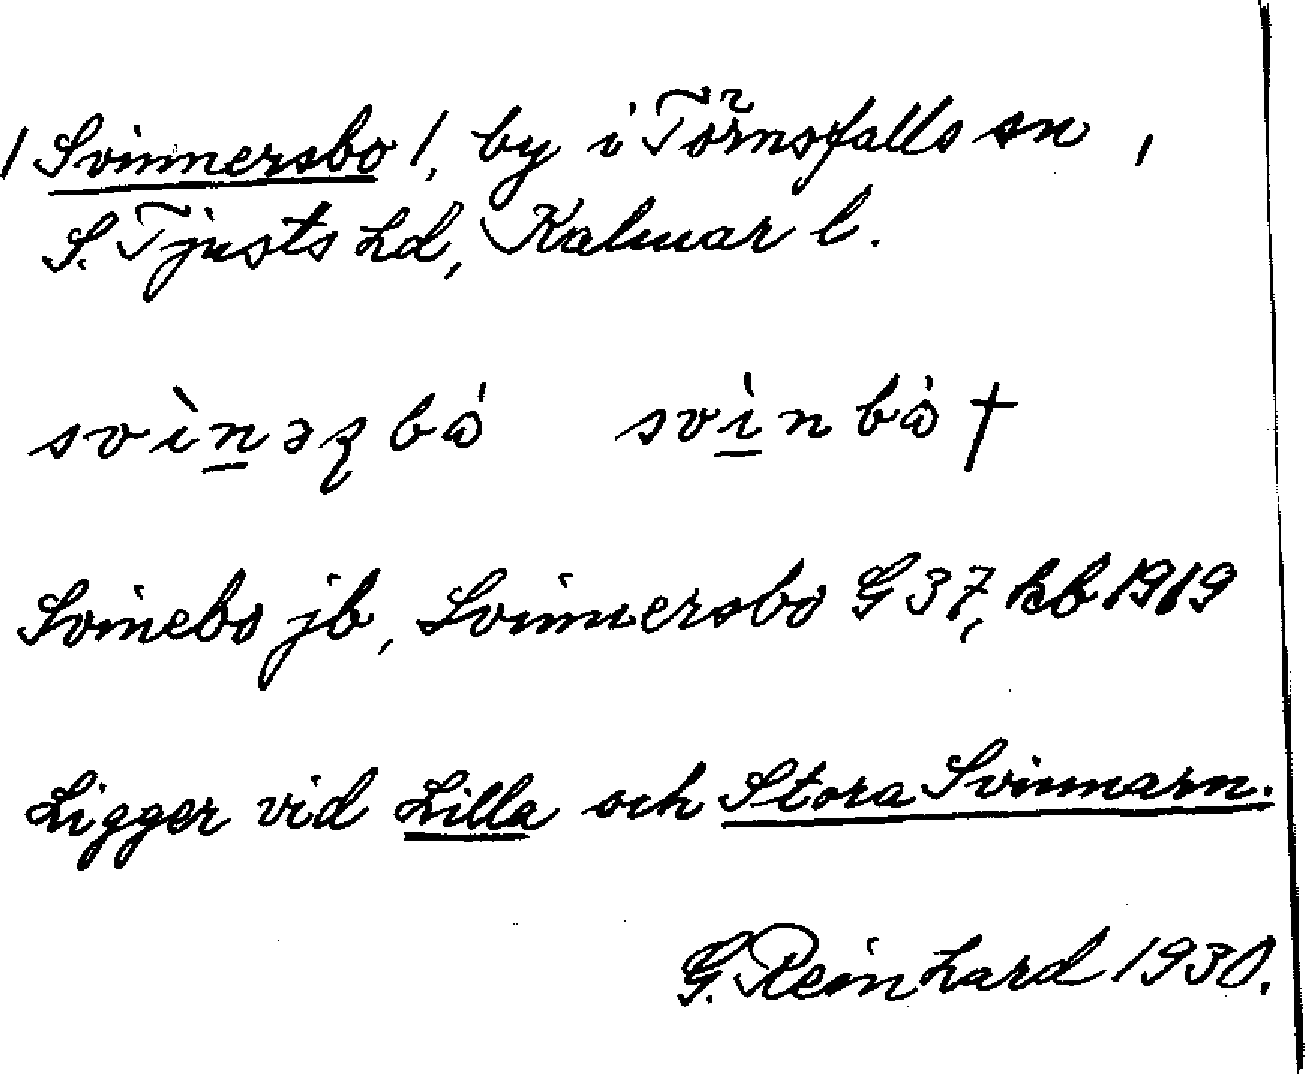 / Svinnersbo /, by i Törnsfalls sn,
S. Tjusts hd, Kalmar l.
svìnəʂbå̀ svìnbå̀ †
Svinebo jb, Svinnersbo G 37, kb 1919
Ligger vid Lilla och Stora Svinnarn.
G. Reinhard 1930.